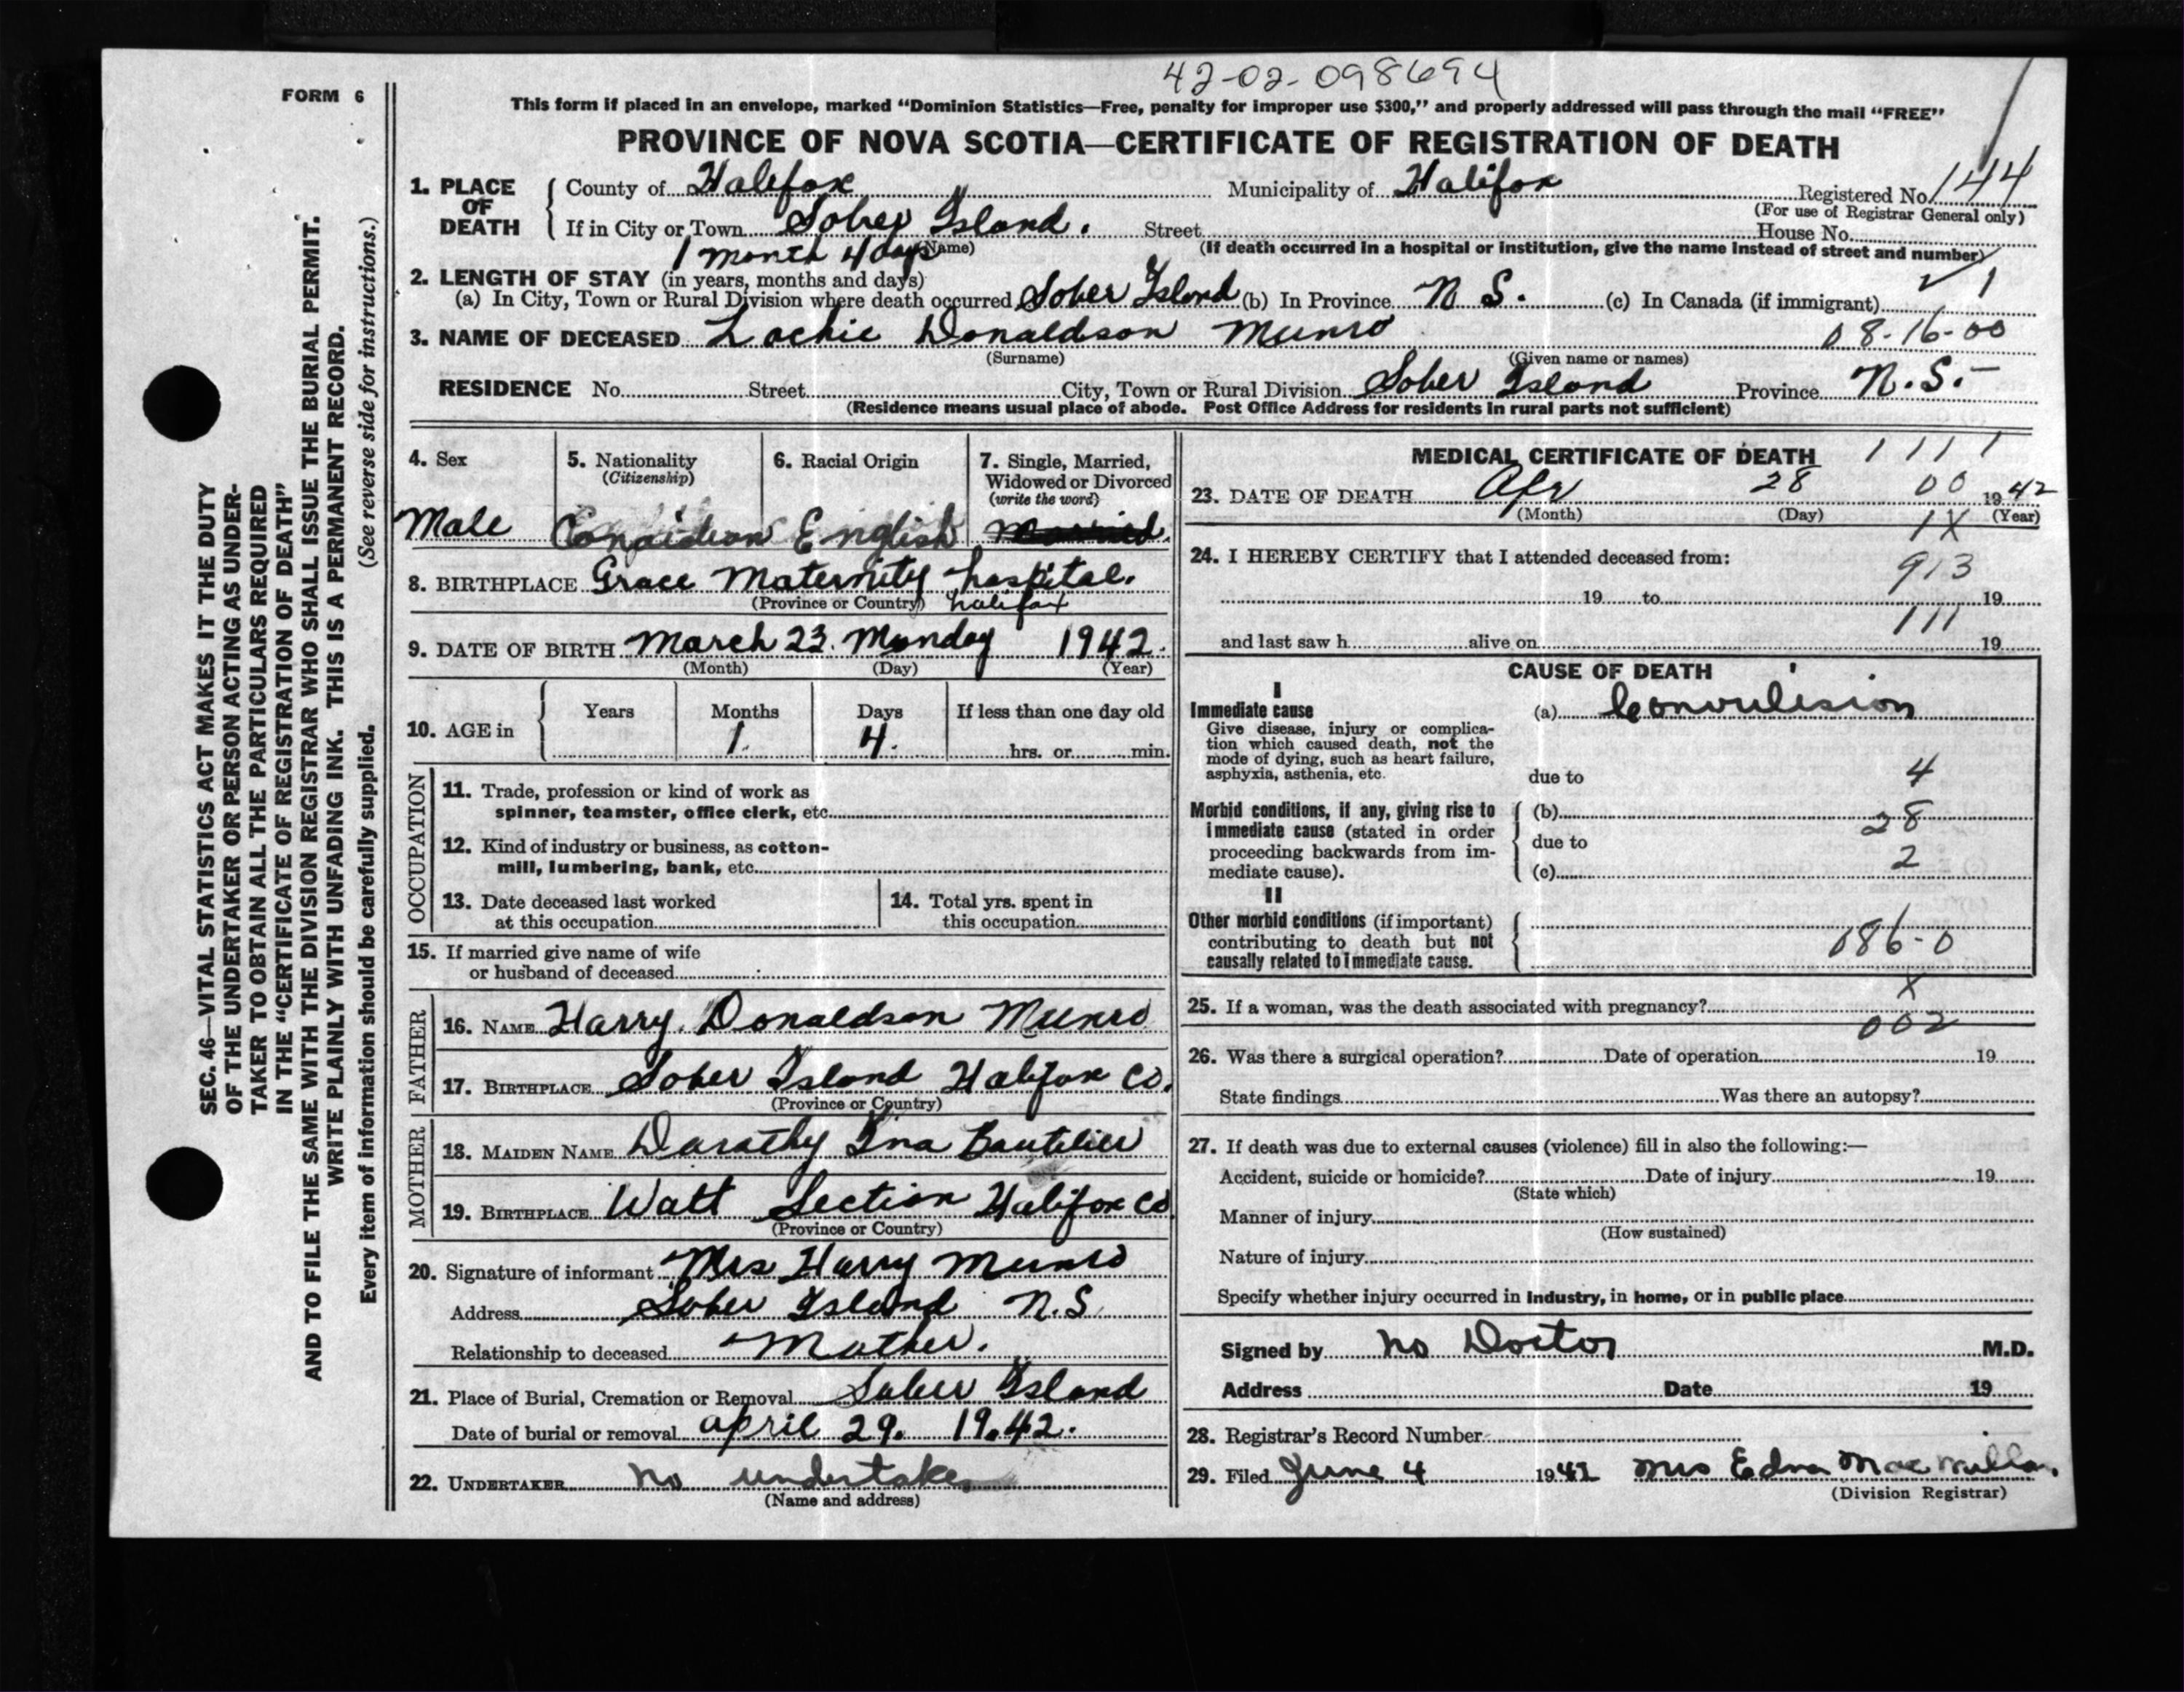 42-02-098694
FORM 6
This form if placed in an envelope, marked "Dominion Statistics—Free, penalty for improper use $300," and properly addressed will pass through the mail "FREE"
PROVINCE OF NOVA SCOTIA—CERTIFICATE OF REGISTRATION OF DEATH
1. PLACE OF DEATH
County of Halifax Municipality of Halifax Registered No. 144
(For use of Registrar General only)
If in City or Town Sober Island. Street House No.
1 month 4 days (Name) (If death occurred in a hospital or institution, give the name instead of street and number)
2. LENGTH OF STAY (in years, months and days)
(a) In City, Town or Rural Division where death occurred Sober Island (b) In Province N S. (c) In Canada (if immigrant)
3. NAME OF DECEASED Lockie Donaldson Munro 08-16-00
(Surname) (Given name or names)
RESIDENCE No. Street City, Town or Rural Division Sober Island Province N.S.-
(Residence means usual place of abode. Post Office Address for residents in rural parts not sufficient)
4. Sex
Male
5. Nationality
(Citizenship)
Conaidean
6. Racial Origin
English
7. Single, Married, Widowed or Divorced
(write the word)
Married.
8. BIRTHPLACE Grace Maternity hospital.
(Province or Country) halifax
9. DATE OF BIRTH March 23. Monday 1942.
(Month) (Day) (Year)
10. AGE in
Years Months Days If less than one day old
1. 4. hrs. or min.
OCCUPATION
11. Trade, profession or kind of work as
spinner, teamster, office clerk, etc.
12. Kind of industry or business, as cotton-
mill, lumbering, bank, etc.
13. Date deceased last worked
at this occupation
14. Total yrs. spent in
this occupation
15. If married give name of wife
or husband of deceased
FATHER
16. NAME Harry Donaldson Munro
17. BIRTHPLACE Sober Island Halifax Co.
(Province or Country)
MOTHER
18. MAIDEN NAME Darathy Ina Boutilier
19. BIRTHPLACE Watt Section Halifax Co
(Province or Country)
20. Signature of informant Mrs Harry Munro
Address Sober Island N.S
Relationship to deceased Mother.
21. Place of Burial, Cremation or Removal Sober Island
Date of burial or removal april 29. 19.42.
22. UNDERTAKER no undertaker
(Name and address)
MEDICAL CERTIFICATE OF DEATH 1 1 1 1
23. DATE OF DEATH Apr 28 00 1942
(Month) (Day) 1X (Year)
24. I HEREBY CERTIFY that I attended deceased from: 913
19 to 19
111
and last saw h alive on 19
CAUSE OF DEATH
I
Immediate cause
Give disease, injury or complica-
tion which caused death, not the
mode of dying, such as heart failure,
asphyxia, asthenia, etc.
(a) Convulision
due to 4
Morbid conditions, if any, giving rise to
immediate cause (stated in order
proceeding backwards from im-
mediate cause).
(b) 28
due to
(c) 2
II
Other morbid conditions (if important)
contributing to death but not
causally related to immediate cause.
086-0
X
25. If a woman, was the death associated with pregnancy?
002
26. Was there a surgical operation? Date of operation 19
State findings Was there an autopsy?
27. If death was due to external causes (violence) fill in also the following:—
Accident, suicide or homicide? Date of injury 19
(State which)
Manner of injury
(How sustained)
Nature of injury
Specify whether injury occurred in industry, in home, or in public place
Signed by no Doctor M.D.
Address Date 19
28. Registrar's Record Number
29. Filed June 4 1942 Mrs Edna MacMillan.
(Division Registrar)
SEC. 46—VITAL STATISTICS ACT MAKES IT THE DUTY
OF THE UNDERTAKER OR PERSON ACTING AS UNDER-
TAKER TO OBTAIN ALL THE PARTICULARS REQUIRED
IN THE "CERTIFICATE OF REGISTRATION OF DEATH"
AND TO FILE THE SAME WITH THE DIVISION REGISTRAR WHO SHALL ISSUE THE BURIAL PERMIT.
WRITE PLAINLY WITH UNFADING INK. THIS IS A PERMANENT RECORD.
Every item of information should be carefully supplied. (See reverse side for instructions.)